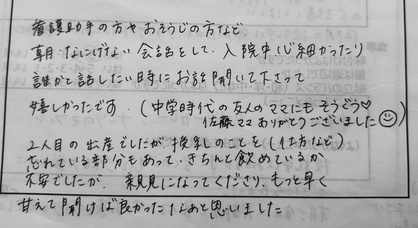 看護助手の方やおそうじの方など
朝、なにげない会話をして、入院中心細かったり
誰かと話したい時にお話聞いて下さって
嬉しかったです。(中学時代の友人のママにもそうぐう♡
佐藤ママありがとうございました☺)
2人目の出産でしたが、授乳のことを(仕方など)
忘れている部分もあって、きちんと飲めているか
不安でしたが、親身になってくださり、もっと早く
甘えて聞けば良かったなあと思いました